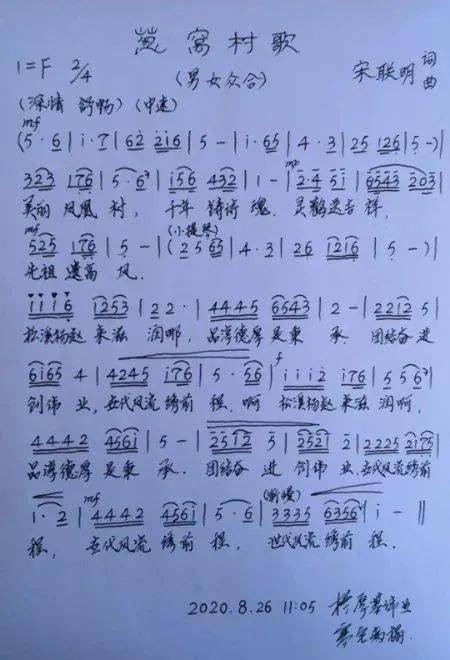 葱窝村歌
1=F 2/4
(男女众合)
宋联明 词曲
(深情 舒畅) (中速)
mf
(5·6 | i·7 | 62 216 | 5 - | i·65 | 4·3 | 25 126 | 5 -)
mp
323 176 | 5·6 | i56 432 | 1 - | 2·4 5i | 66543 203 |
美丽凤凰村, 千年铸诗魂. 灵鹤送吉祥,
mf (小提琴)
525 176 | 5 - | (2565 | 4·3 | 26 1216 | 5 -) |
先祖遗高风.
iii6 1253 | 22· | 4445 6543 | 2 - | 2212 5 |
松溪杨赵来滋润哪, 品淳德厚是秉承. 团结奋进
f
6165 4 | 4245 i76 | 5·56 | iii2 i76 | 556 |
创伟业, 世代风流绣前程. 啊 松溪杨赵来滋润啊,
4442 456i | 5 - | 2512 5 | 2521 2 | 2225 2175 |
品淳德厚是秉承. 团结奋进创伟业, 世代风流绣前
mf (渐慢)
i·2 | 4442 456i | 5·6 | 3335 6356 | i - ||
程, 世代风流绣前程, 世代风流绣前程.
2020.8.26 11:05